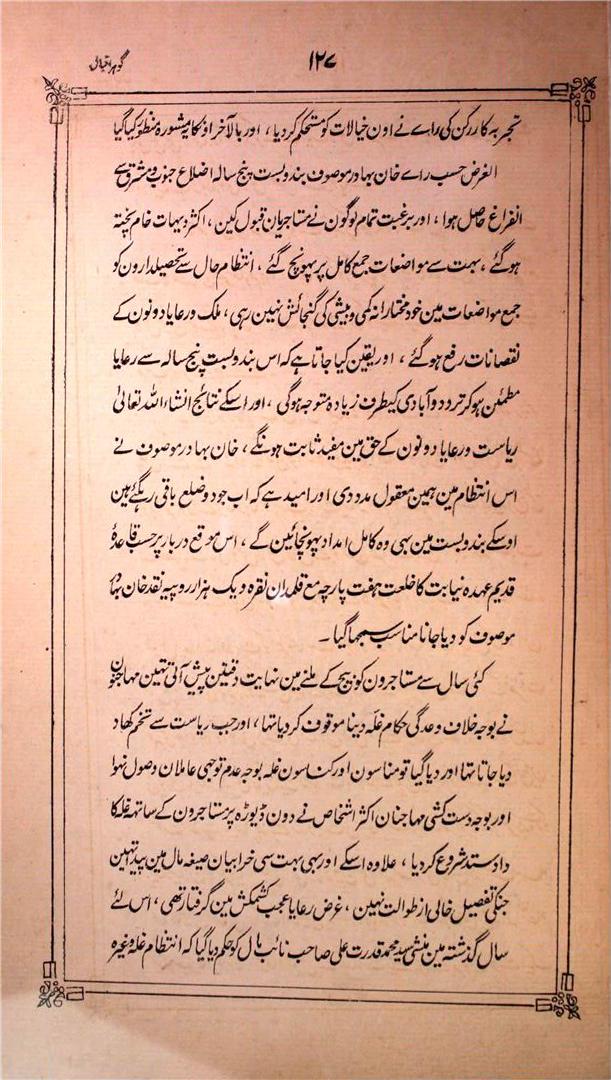 ۱۲۷
گوہر اقبال
تجربہ کار رکن کی رائے نے اون خیالات کو مستحکم کردیا ، اور بالآخر اونکا یہ مشورہ منظور کیا گیا
الغرض حسب راے خان بہادر موصوف بندوبست پنج سالہ اضلاع جنوب و مشرق سے
انفراغ حاصل ہوا ، اور برغبت تمام لوگون نے مستاجریان قبول کین ، اکثر دیہات خام پختہ
ہوگئے ، بہت سے مواضعات جمع کامل پر پہونچ گئے ، انتظام حال سے تحصیلدارون کو
جمع مواضعات مین خود مختارانہ کمی و بیشی کی گنجائش نہین رہی ، ملک و رعایا دونون کے
نقصانات رفع ہوگئے ، اور یقین کیا جاتا ہے کہ اس بندوبست پنج سالہ سے رعایا
مطمئن ہوکر تردد و آبادی کیطرف زیادہ متوجہ ہوگی ، اور اسکے نتائج انشاء اللہ تعالیٰ
ریاست و رعایا دونون کے حق مین مفید ثابت ہونگے ، خان بہادر موصوف نے
اس انتظام مین ہمین معقول مدد دی اور امید ہے کہ اب جو دو ضلع باقی رہگئے ہین
اوسکے بندوبست مین بہی وہ کامل امداد پہونچائین گے ، اس موقع دربار پر حسب قاعدۂ
قدیم عہدہ نیابت کا خلعت ہفت پارچہ مع قلمدان نقرہ و یک ہزار روپیہ نقد خان بہادر
موصوف کو دیا جانا مناسب سمجہا گیا ۔
کئی سال سے مستاجرون کو بیج کے ملنے مین نہایت دقتین پیش آتی تہین مہاجنون
نے بوجہ خلاف وعدگی حکام غلّہ دینا موقوف کردیا تہا ، اور جب ریاست سے تخم کہاد
دیا جاتا تہا اور دیا گیا تو مناسون اور کناسون غلہ بوجہ عدم توجہی عاملان وصول نہوا
اور بوجہ دست کشی مہاجنان اکثر اشخاص نے دون ڈیوڑہ پر مستاجرون کے ساتہہ غلہ کا
داد ستد شروع کردیا ، علاوہ اسکے اور بہی بہت سی خرابیان صیغہ مال مین پیدا تہین
جنکی تفصیل خالی از طوالت نہین ، غرض رعایا عجب کشمکش مین گرفتار تھی ، اس لئے
سال گذشتہ مین منشی سید محمد قدرت علی صاحب نائب مال کو حکم دیا گیا کہ انتظام غلہ وغیرہ